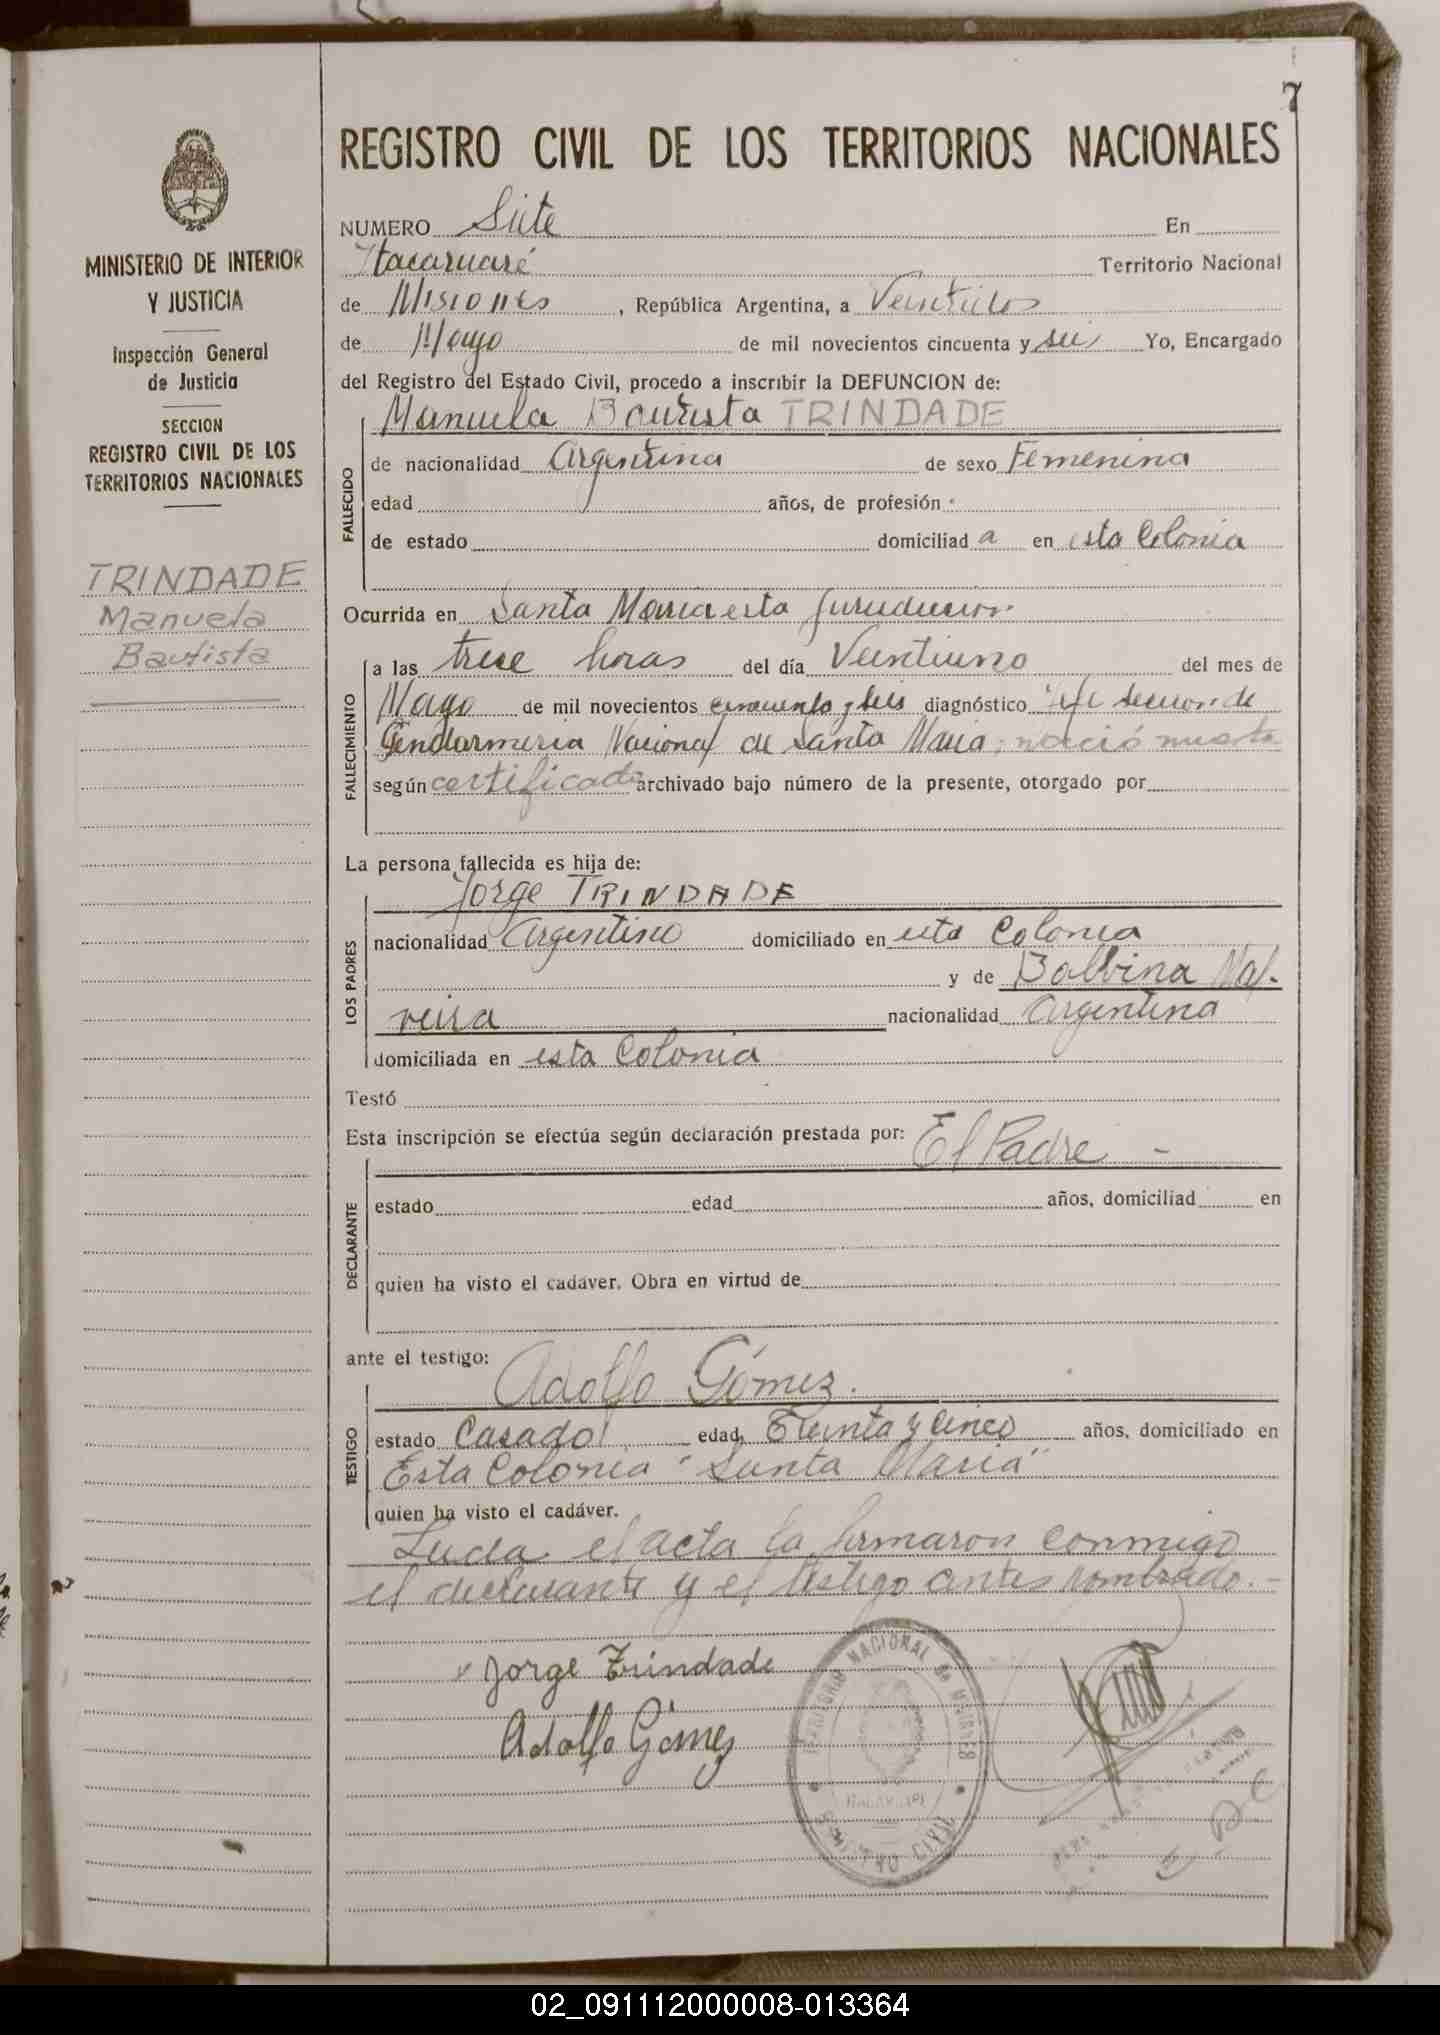 7
REGISTRO CIVIL DE LOS TERRITORIOS NACIONALES
MINISTERIO DE INTERIOR
Y JUSTICIA
Inspección General
de Justicia
SECCION
REGISTRO CIVIL DE LOS
TERRITORIOS NACIONALES
TRINDADE
Manuela
Bautista
NUMERO Siete En
Itacaruaré Territorio Nacional
de Misiones, República Argentina, a Veintidos
de Mayo de mil novecientos cincuenta y seis Yo, Encargado
del Registro del Estado Civil, procedo a inscribir la DEFUNCION de:
Manuela Bautista TRINDADE
FALLECIDO
de nacionalidad Argentina de sexo Femenina
edad años, de profesión
de estado domiciliad a en esta Colonia
Ocurrida en Santa Maria esta Jurisdiccion
FALLECIMIENTO
a las trece horas del día Veintiuno del mes de
Mayo de mil novecientos cincuenta y seis diagnóstico Jefe Seccion de
Gendarmeria Nacional de Santa Maria; nació muerta
según certificado archivado bajo número de la presente, otorgado por
La persona fallecida es hija de:
Jorge TRINDADE
LOS PADRES
nacionalidad Argentino domiciliado en esta Colonia
y de Balbina
nacionalidad Argentina
domiciliada en esta Colonia
Testó
Esta inscripción se efectúa según declaración prestada por: El Padre -
DECLARANTE
estado edad años, domiciliad en
quien ha visto el cadáver. Obra en virtud de
ante el testigo: Adolfo Gómez.
TESTIGO
estado Casado edad, Treinta y Cinco años, domiciliado en
Esta Colonia "Santa Maria"
quien ha visto el cadáver.
Leida el acta la firmaron conmigo
el declarante y el testigo antes nombrado. -
Jorge Trindade
Adolfo Gómez
TERRITORIO NACIONAL de MISIONES
REGISTRO CIVIL
02_091112000008-013364